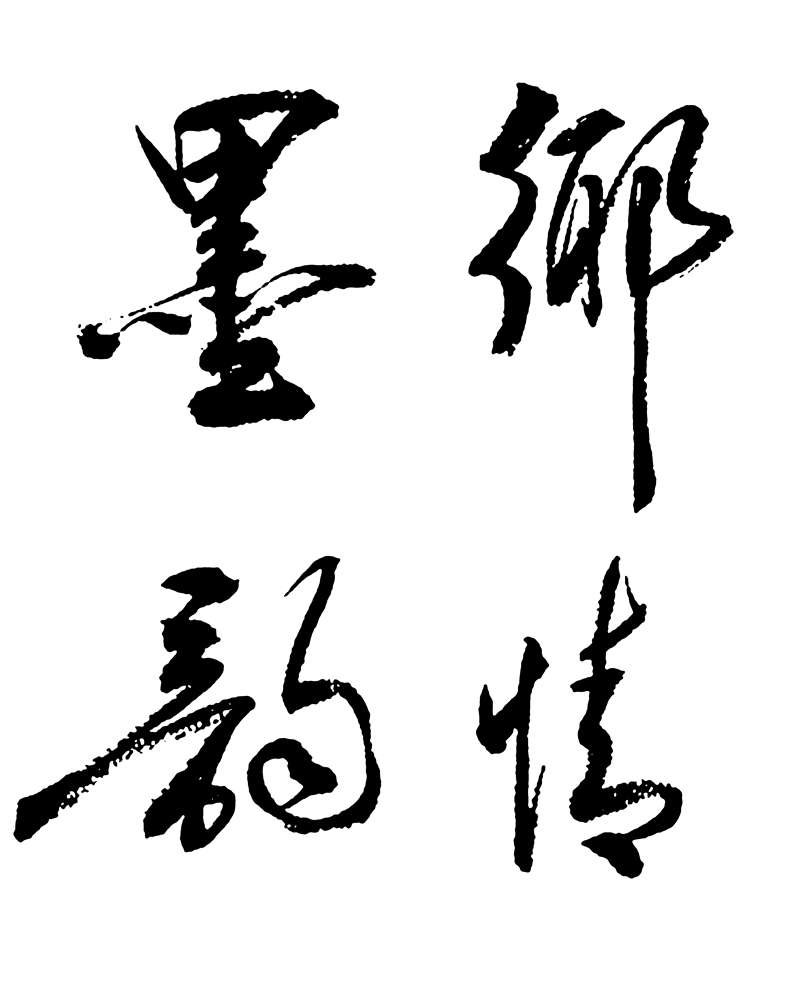 鄉情
墨韵